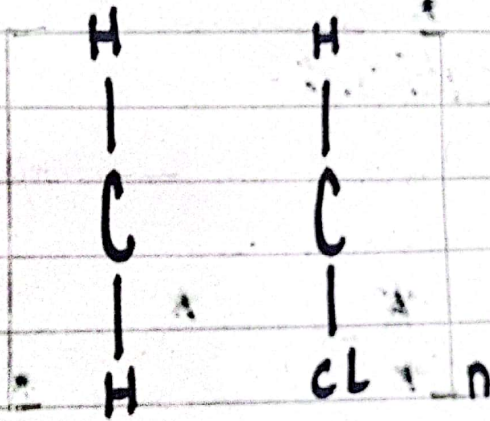 H H
C C
H CL n